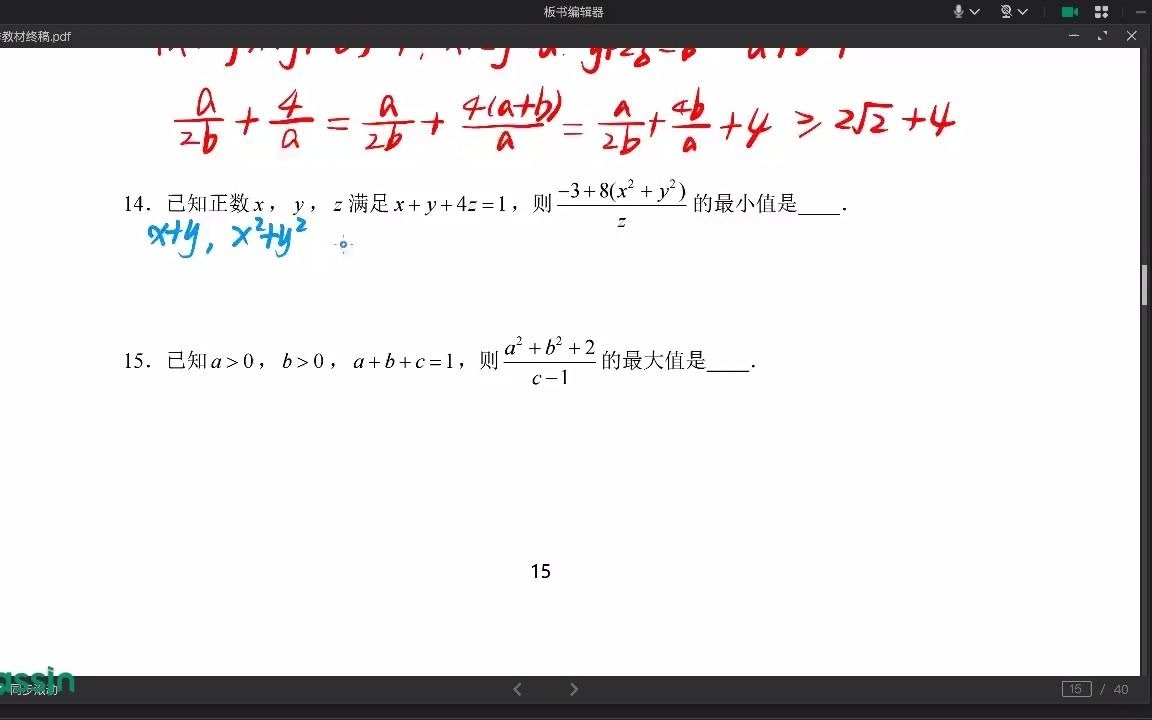 板书编辑器
教材终稿.pdf
a/2b + 4/a = a/2b + 4(a+b)/a = a/2b + 4b/a + 4 ≥ 2√2 + 4
14．已知正数 x，y，z 满足 x + y + 4z = 1，则 (−3 + 8(x² + y²))/z 的最小值是____．
x+y, x²+y²
15．已知 a > 0，b > 0，a + b + c = 1，则 (a² + b² + 2)/(c − 1) 的最大值是____．
15
assin
同步滚动
15 / 40